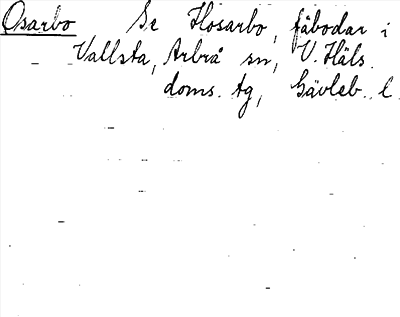 Osarbo Se Hosarbo, fäbodar i
Vallsta, Arbrå sn, V. Häls.
doms. tg, Gävleb. l.